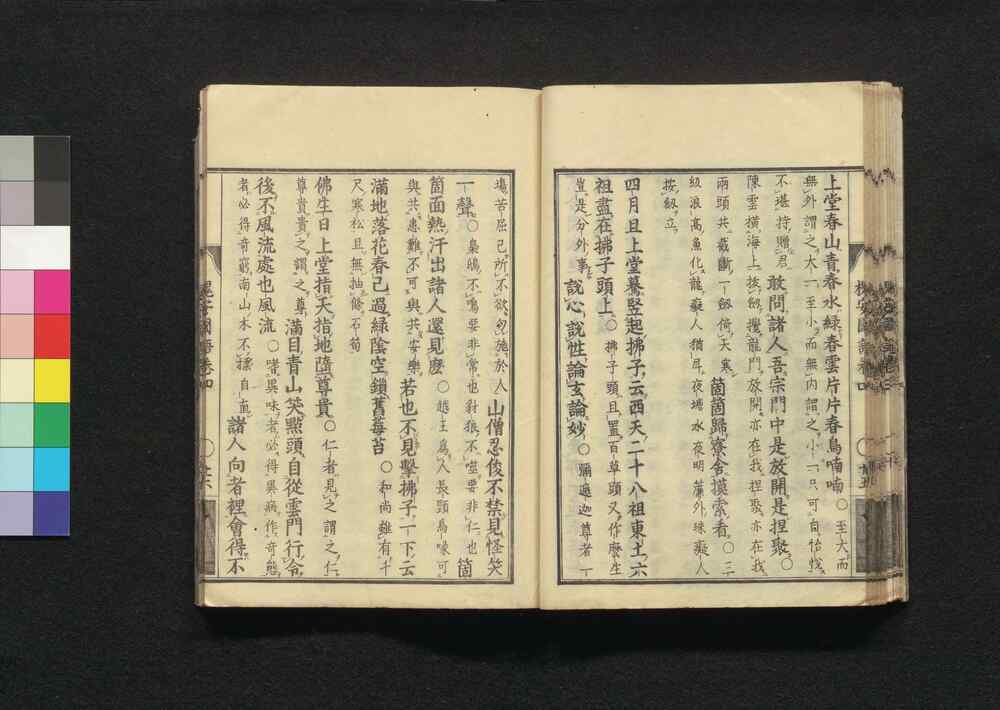 上堂春山青春水緑春雲片片春鳥喃喃○至大而
無外謂之大一至小而無内謂之小一只可自怡悦
不堪持贈君敢問諸人吾宗門中是放開是捏聚○
陳雲横海上拔劔攪龍門放開亦在我捏聚亦在我
兩頭共截斷一劔倚天寒箇箇歸寮舍摸索看○三
級浪高魚化龍癡人猶戽夜塘水夜明簾外珠癡人
按劔立
四月旦上堂驀竪起拂子云西天二十八祖東土六
祖盡在拂子頭上○拂子頭且置百草頭又作麼生
豈是分外事説心説性論玄論妙○彌遍迦尊者一
塲苦屈己所不欲勿施於人山僧忍俊不禁見怪笑
一聲○梟鴟不鳴要非常也豺狼不噬要非仁也箇
箇面熱汗出諸人還見麽○越王爲人長頸鳥喙可
與共患難不可與共安樂若也不見擊拂子一下云
滿地落花春已過緑陰空鎖舊莓苔○和尚雖有千
尺寒松且無抽條石筍
佛生日上堂指天指地隨尊貴○仁者見之謂之仁
尊貴貴之謂之尊滿目青山笑點頭自從雲門行令
後不風流處也風流○嗜異味者必得異病作奇態
者必得奇窮南山木不揉自直諸人向者裡會得不
槐安國語卷四
○廿六